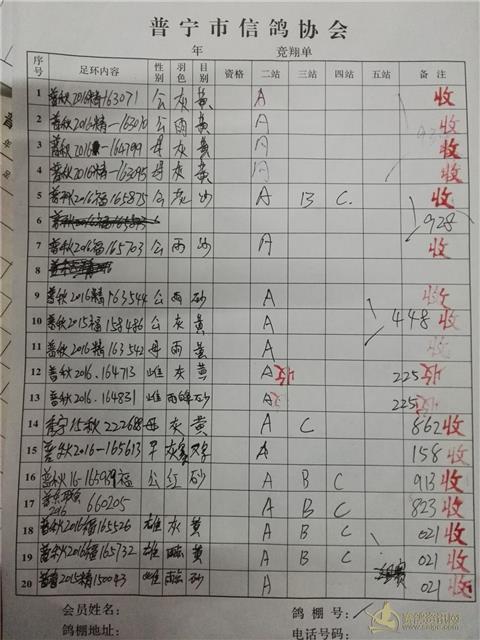 普宁市信鸽协会
年 竞翔单
序号 足环内容 性别 羽色 目别 资格 二站 三站 四站 五站 备注
1 普秋2016精163071 公 灰 黄 A 收
2 普秋2016精-163070 公 雨 黄 A 收
3 普秋2016-164799 母 灰 黄 A 收
4 普秋2016精-163095 母 灰 黄 A 收
5 普秋2016福165875 公 花 沙 A B C. 收
6 928
7 普秋2016福165703 公 雨 沙 A 收
8
9 普秋2016精163544 公 雨 砂 A 收
10 普秋2015福158486 公 灰 黄 A 448 收
11 普秋2016精163542 母 雨 黄 A 收
12 普秋2016.164713 雌 灰 黄 A 收 225 收
13 普秋2016.164831 雌 雨 砂 A 收 225 收
14 15秋222688 母 灰 黄 A C 862 收
15 普秋2016-165613 灰 A 158 收
16 普秋16-165939福 公 红 砂 A B C 913 收
17 2016 660205 A B C 823 收
18 普秋2016福165526 雄 灰 黄 A B C 021 收
19 普秋2016福165732 雄 黄 A B C 021 收
20 普 2015精150043 雌 砂 A 021 收
会员姓名: 鸽棚号:
鸽棚地址: 电话号码: